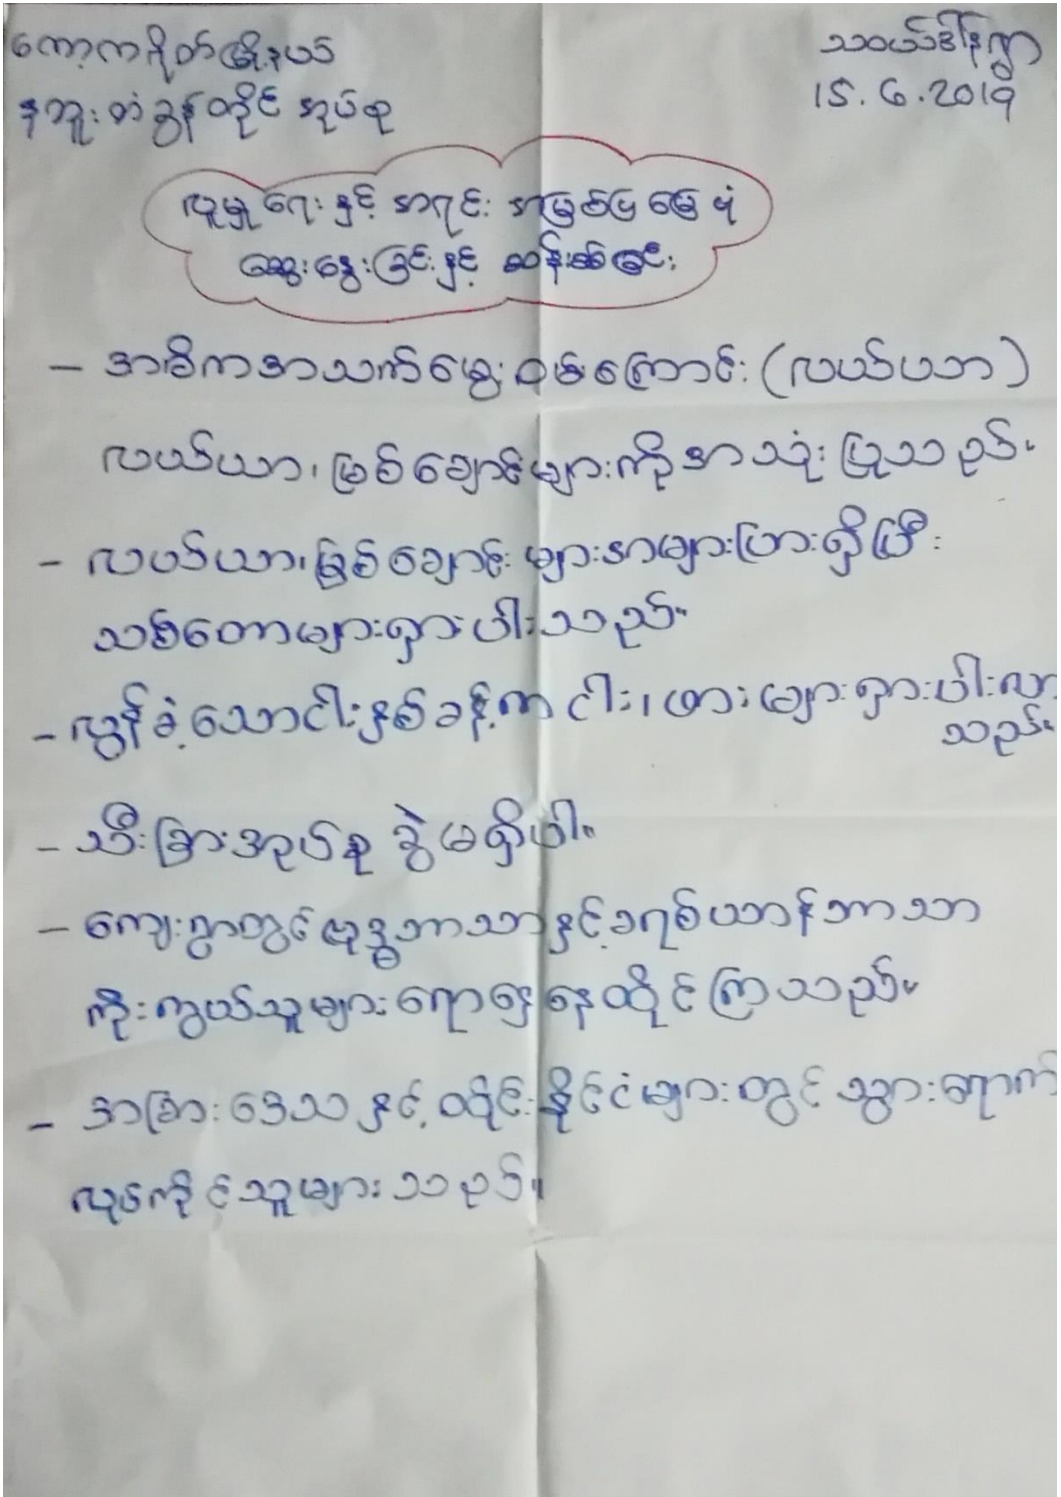 ကော့ကရိတ်မြို့နယ်
သဝယ်ဒေါန်ရွာ
နဘူးတံခွန်တိုင် အုပ်စု
15.6.2019
လူမှုရေးနှင့် အရင်းအမြစ်ပြမြေပုံ
ဆွေးနွေးခြင်းနှင့် ဆန်းစစ်ခြင်း
– အဓိကအသက်မွေးဝမ်းကြောင်း (လယ်ယာ)
လယ်ယာ၊ မြစ်ချောင်းများကိုအသုံးပြုသည်။
– လယ်ယာ၊ မြစ်ချောင်းများအများကြားရှိပြီး
သစ်တောများရှားပါးသည်။
– လွန်ခဲ့သောငါးနှစ်ခန့်က ငါး၊ ဖားများရှားပါးလာ
သည်။
– သီးခြားအုပ်စု ခွဲမရှိပါ။
– ကျေးရွာတွင်ဗုဒ္ဓဘာသာနှင့်ခရစ်ယာန်ဘာသာ
ကိုးကွယ်သူများရောနှောနေထိုင်ကြသည်။
– အခြားဒေသနှင့် ထိုင်းနိုင်ငံများတွင်သွားရောက်
လုပ်ကိုင်သူများသည်။